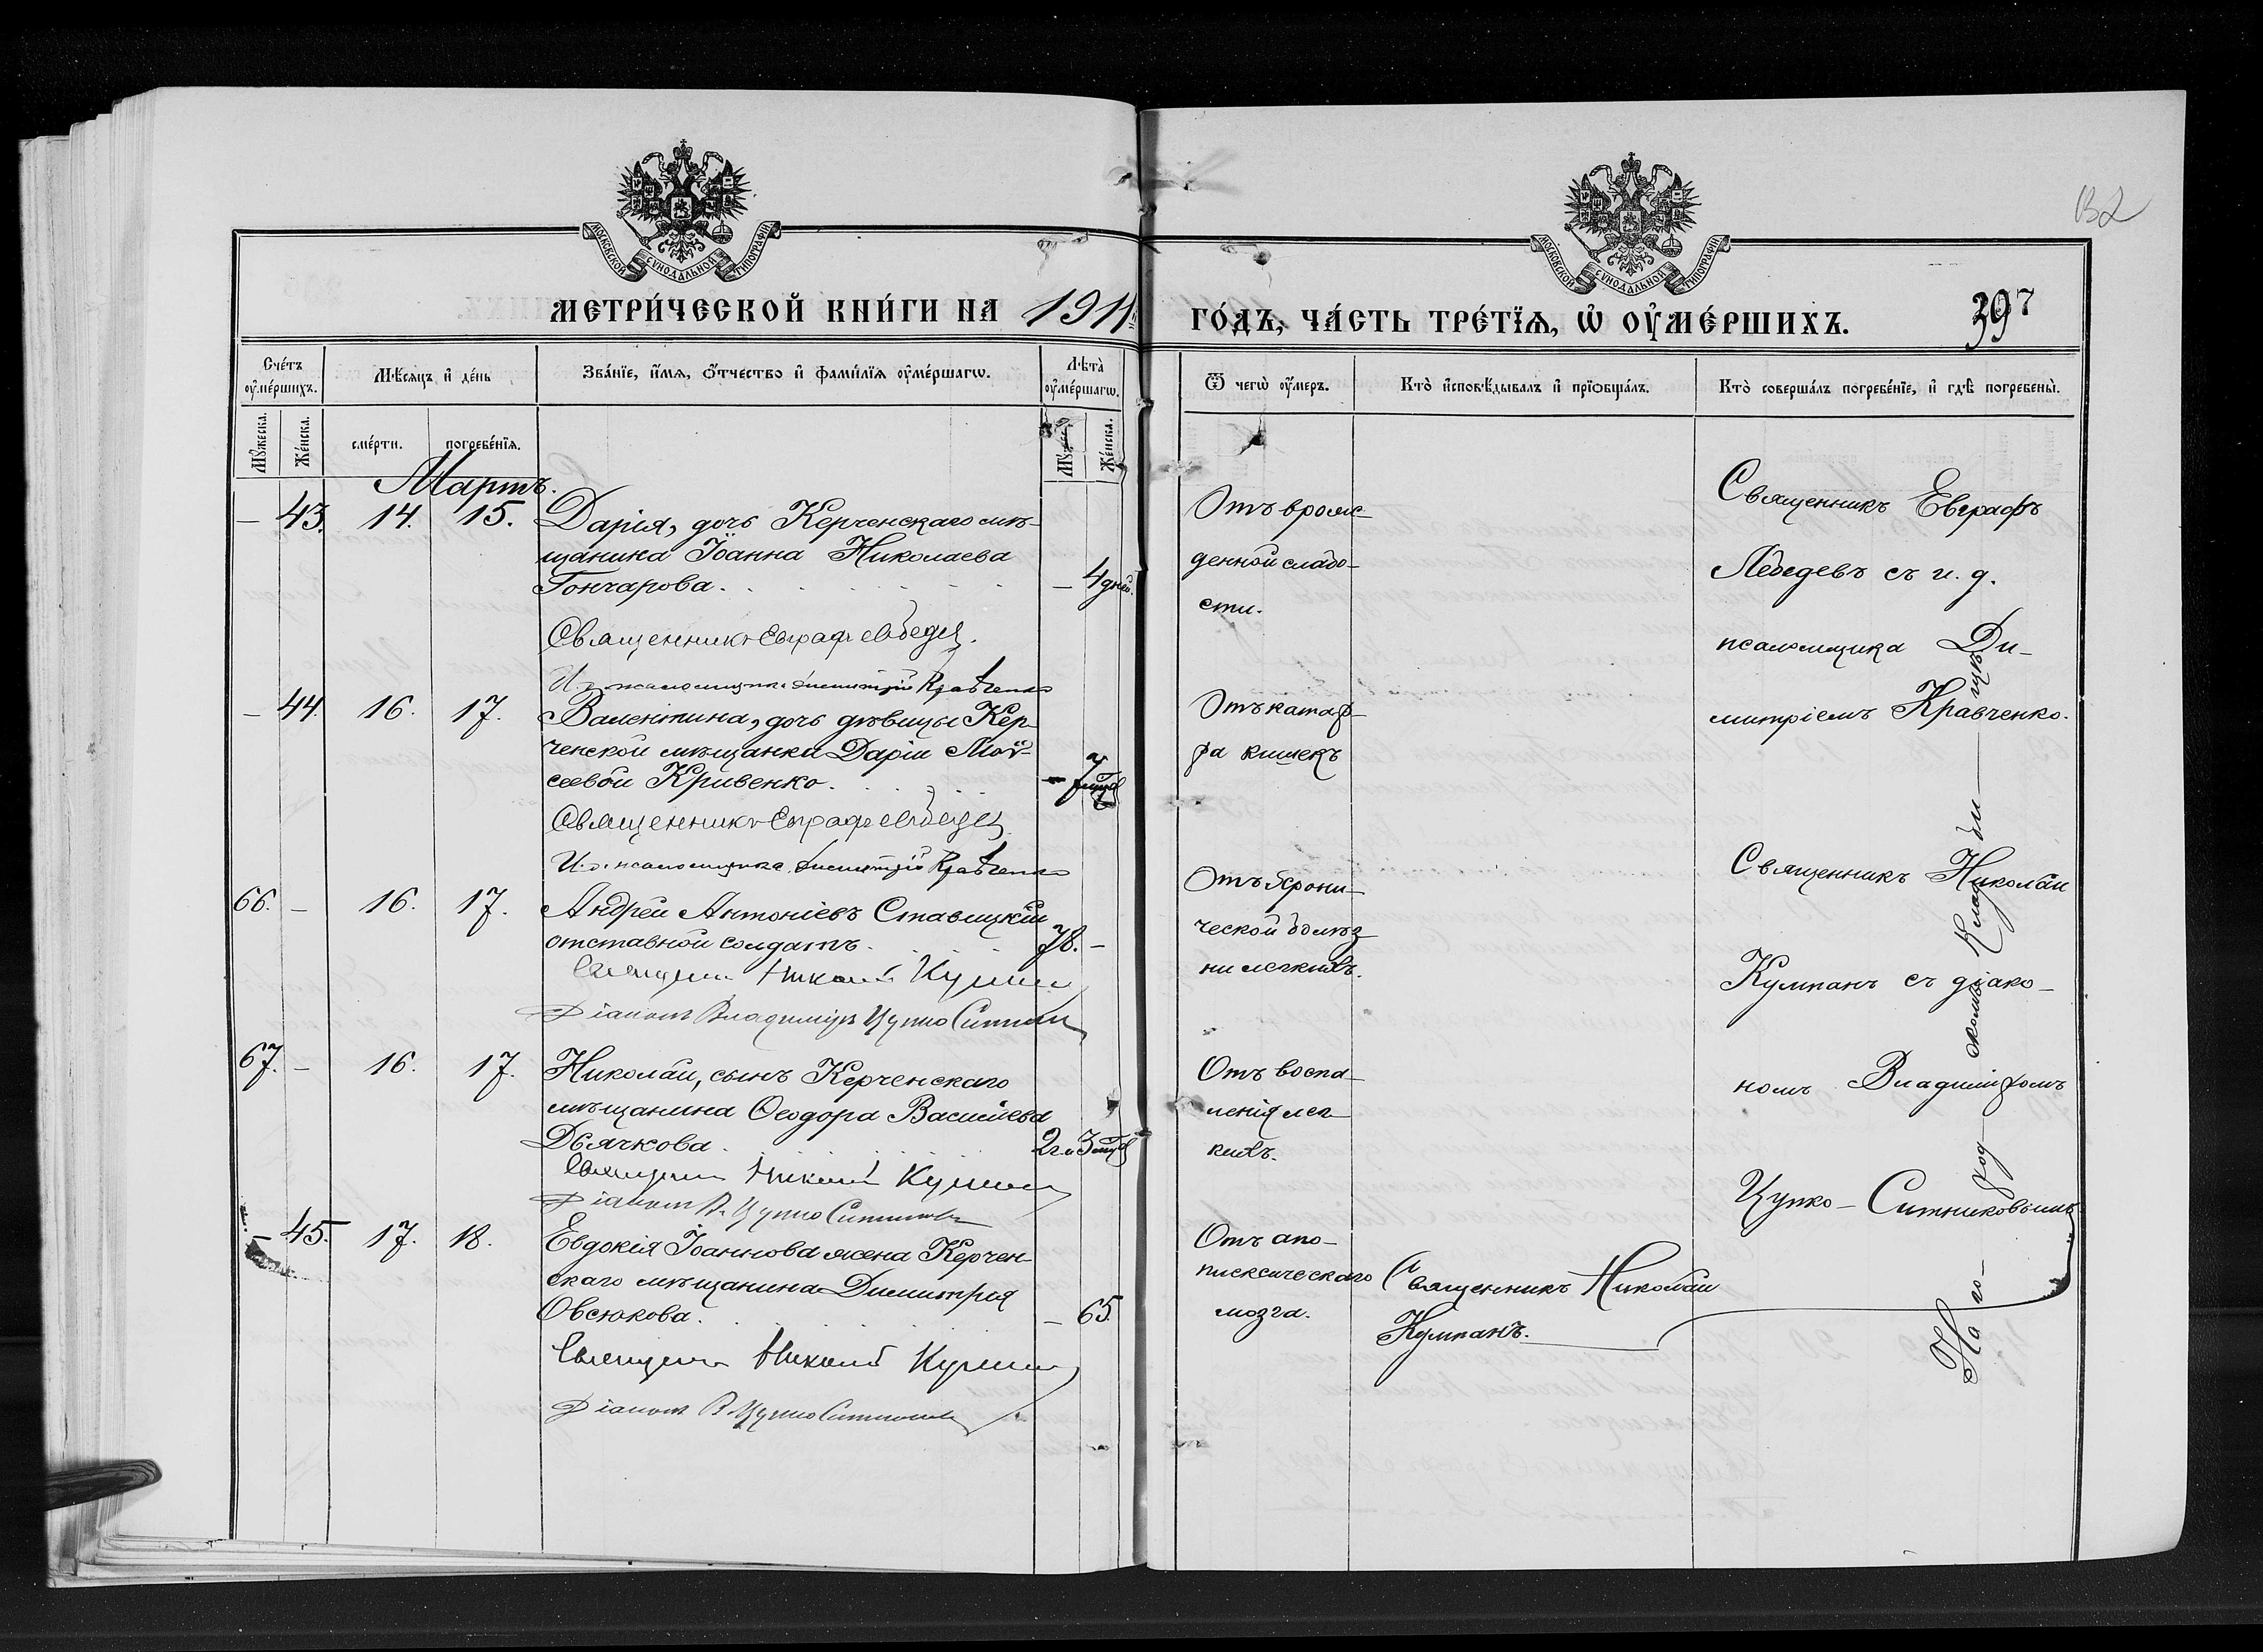 МОСКОВСКОЙ СѴНОДАЛЬНОЙ ТИПОГРАФІИ
МОСКОВСКОЙ СѴНОДАЛЬНОЙ ТИПОГРАФІИ
МЕТРИ́ЧЕСКОЙ КНИ́ГИ НА 1911
ГО́ДЪ, ЧА́СТЬ ТРЕ́ТЇѦ, Ѡ҆ ОУ҆МЕ́РШИХЪ.
397
Сче́тъ оу҆ме́ршихъ.
Мѣ́сѧцъ и҆ де́нь
Зва́нїе, и҆́мѧ, ѻ҆́тчество и҆ фами́лїѧ оу҆ме́ршагѡ.
Лѣ́та оу҆ме́ршагѡ.
Ѿ чегѡ̀ оу҆́меръ.
Кто̀ и҆сповѣ́дывалъ и҆ прїѻбща́лъ.
Кто̀ соверша́лъ погребе́нїе, и҆ гдѣ̀ погребены̀.
Мꙋ́жеска.
Же́нска.
сме́рти.
погребе́нїѧ.
Мꙋ́жеска.
Же́нска.
Мартъ.
— 43. 14. 15. Дарія, дочь Керченскаго мѣ-
щанина Іоанна Николаева
Гончарова. — 4 дней.
Священникъ Евграфъ Лебедев.
И. д. псаломщика Димитрій Кравченко
Отъ врож-
денной слабо-
сти.
Священникъ Евграфъ
Лебедевъ съ и. д.
псаломщика Ди-
митріемъ Кравченко.
— 44. 16. 17. Валентина, дочь дѣвицы Кер-
ченской мѣщанки Даріи Мой-
сеевой Кривенко. — 7 мцвъ
Священникъ Евграфъ Лебедев
И. д. псаломщика Димитрій Кравченко
Отъ катар-
ра кишекъ
66. — 16. 17. Андрей Антоніевъ Ставицкій
отставной солдатъ. 78. —
Священник Николай Кумпан
Діаконъ Владимиръ Цупко Ситников
Отъ хрони-
ческой болѣз
ни легкихъ.
Священникъ Николай
Кумпанъ съ діако-
номъ Владиміромъ
Цупко-Ситниковымъ
67. — 16. 17. Николай, сынъ Керченскаго
мѣщанина Ѳеодора Васильева
Дьячкова. 2 г. и 3 мцв
Священник Николай Кумпан
Діаконъ В. Цупко Ситников
Отъ воспа-
ленія лег-
кихъ.
— 45. 17. 18. Евдокія Іоаннова жена Керчен-
скаго мѣщанина Димитрія
Овсюкова. — 65.
Священник Николай Кумпан
Діаконъ В. Цупко Ситников
Отъ апо-
плексическаго
мозга.
Священникъ Николай
Кумпанъ.
На го-